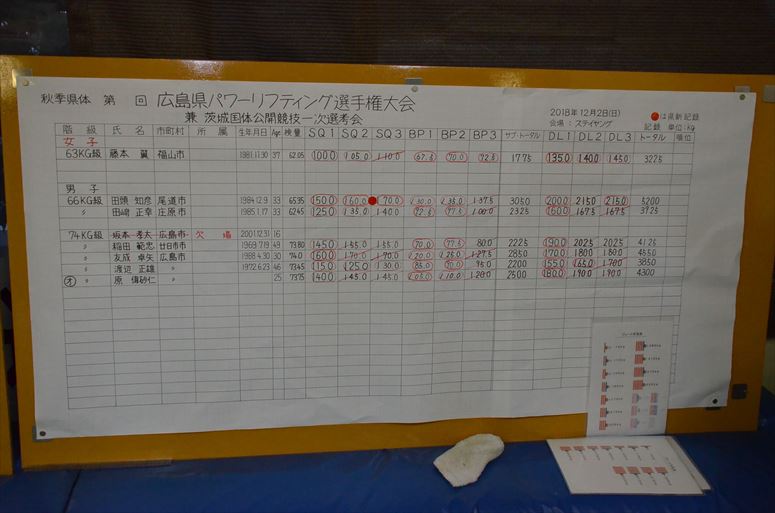 秋季県体 第 回 広島県パワーリフティング選手権大会
兼 茨城国体公開競技一次選考会
2018年 12月2日(日)
会場：ステイヤング
●は県新記録
記録 単位:kg
階級 氏名 市町村 所属 生年月日 Age 検量 SQ1 SQ2 SQ3 BP1 BP2 BP3 サブ・トータル DL1 DL2 DL3 トータル 順位
女子
63KG級 藤本 翼 福山市 1981.11.30 37 62.05 100.0 105.0 110.0 67.5 70.0 72.5 177.5 135.0 140.0 145.0 322.5
男子
66KG級 田頭 知彦 尾道市 1984.12.9 33 65.35 150.0 160.0 170.0 130.0 135.0 137.5 305.0 200.0 215.0 215.0 520.0
〃 田嶋 正幸 庄原市 1985.1.17 33 62.45 125.0 135.0 140.0 92.5 97.5 100.0 232.5 160.0 167.5 167.5 372.5
74KG級 坂本 孝太 広島市 欠場 2001.12.31 16
〃 稲田 範忠 廿日市市 1969.7.19 49 73.80 145.0 155.0 155.0 70.0 77.5 80.0 222.5 190.0 202.5 202.5 412.5
〃 友成 卓矢 広島市 1988.4.30 30 74.0 160.0 170.0 170.0 120.0 125.0 127.5 285.0 170.0 180.0 180.0 455.0
〃 渡辺 正雄 〃 1972.6.23 46 73.45 115.0 125.0 130.0 85.0 90.0 95.0 220.0 155.0 165.0 170.0 385.0
オ 〃 原 偉砂仁 〃 25 73.75 140.0 145.0 145.0 105.0 110.0 120.0 250.0 180.0 190.0 190.0 430.0